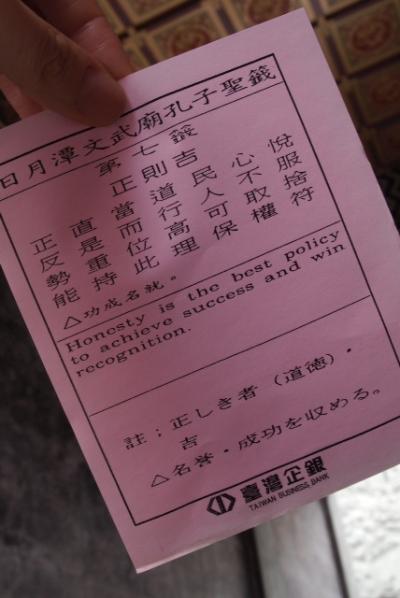 日月潭文武廟孔子聖籤
第七籤
正則吉
正直當道民心悅
反是而行人不服
勢重位高可取捨
能持此理保權符
△功成名就。
Honesty is the best policy
to achieve success and win
recognition.
註；正しき者（道徳）・
吉
△名誉・成功を収める。
臺灣企銀
TAIWAN BUSINESS BANK